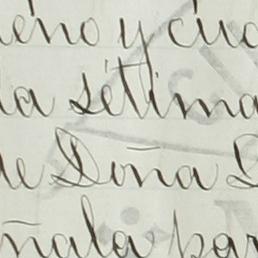 eno y cua
la settima
de Doña D
ñala par